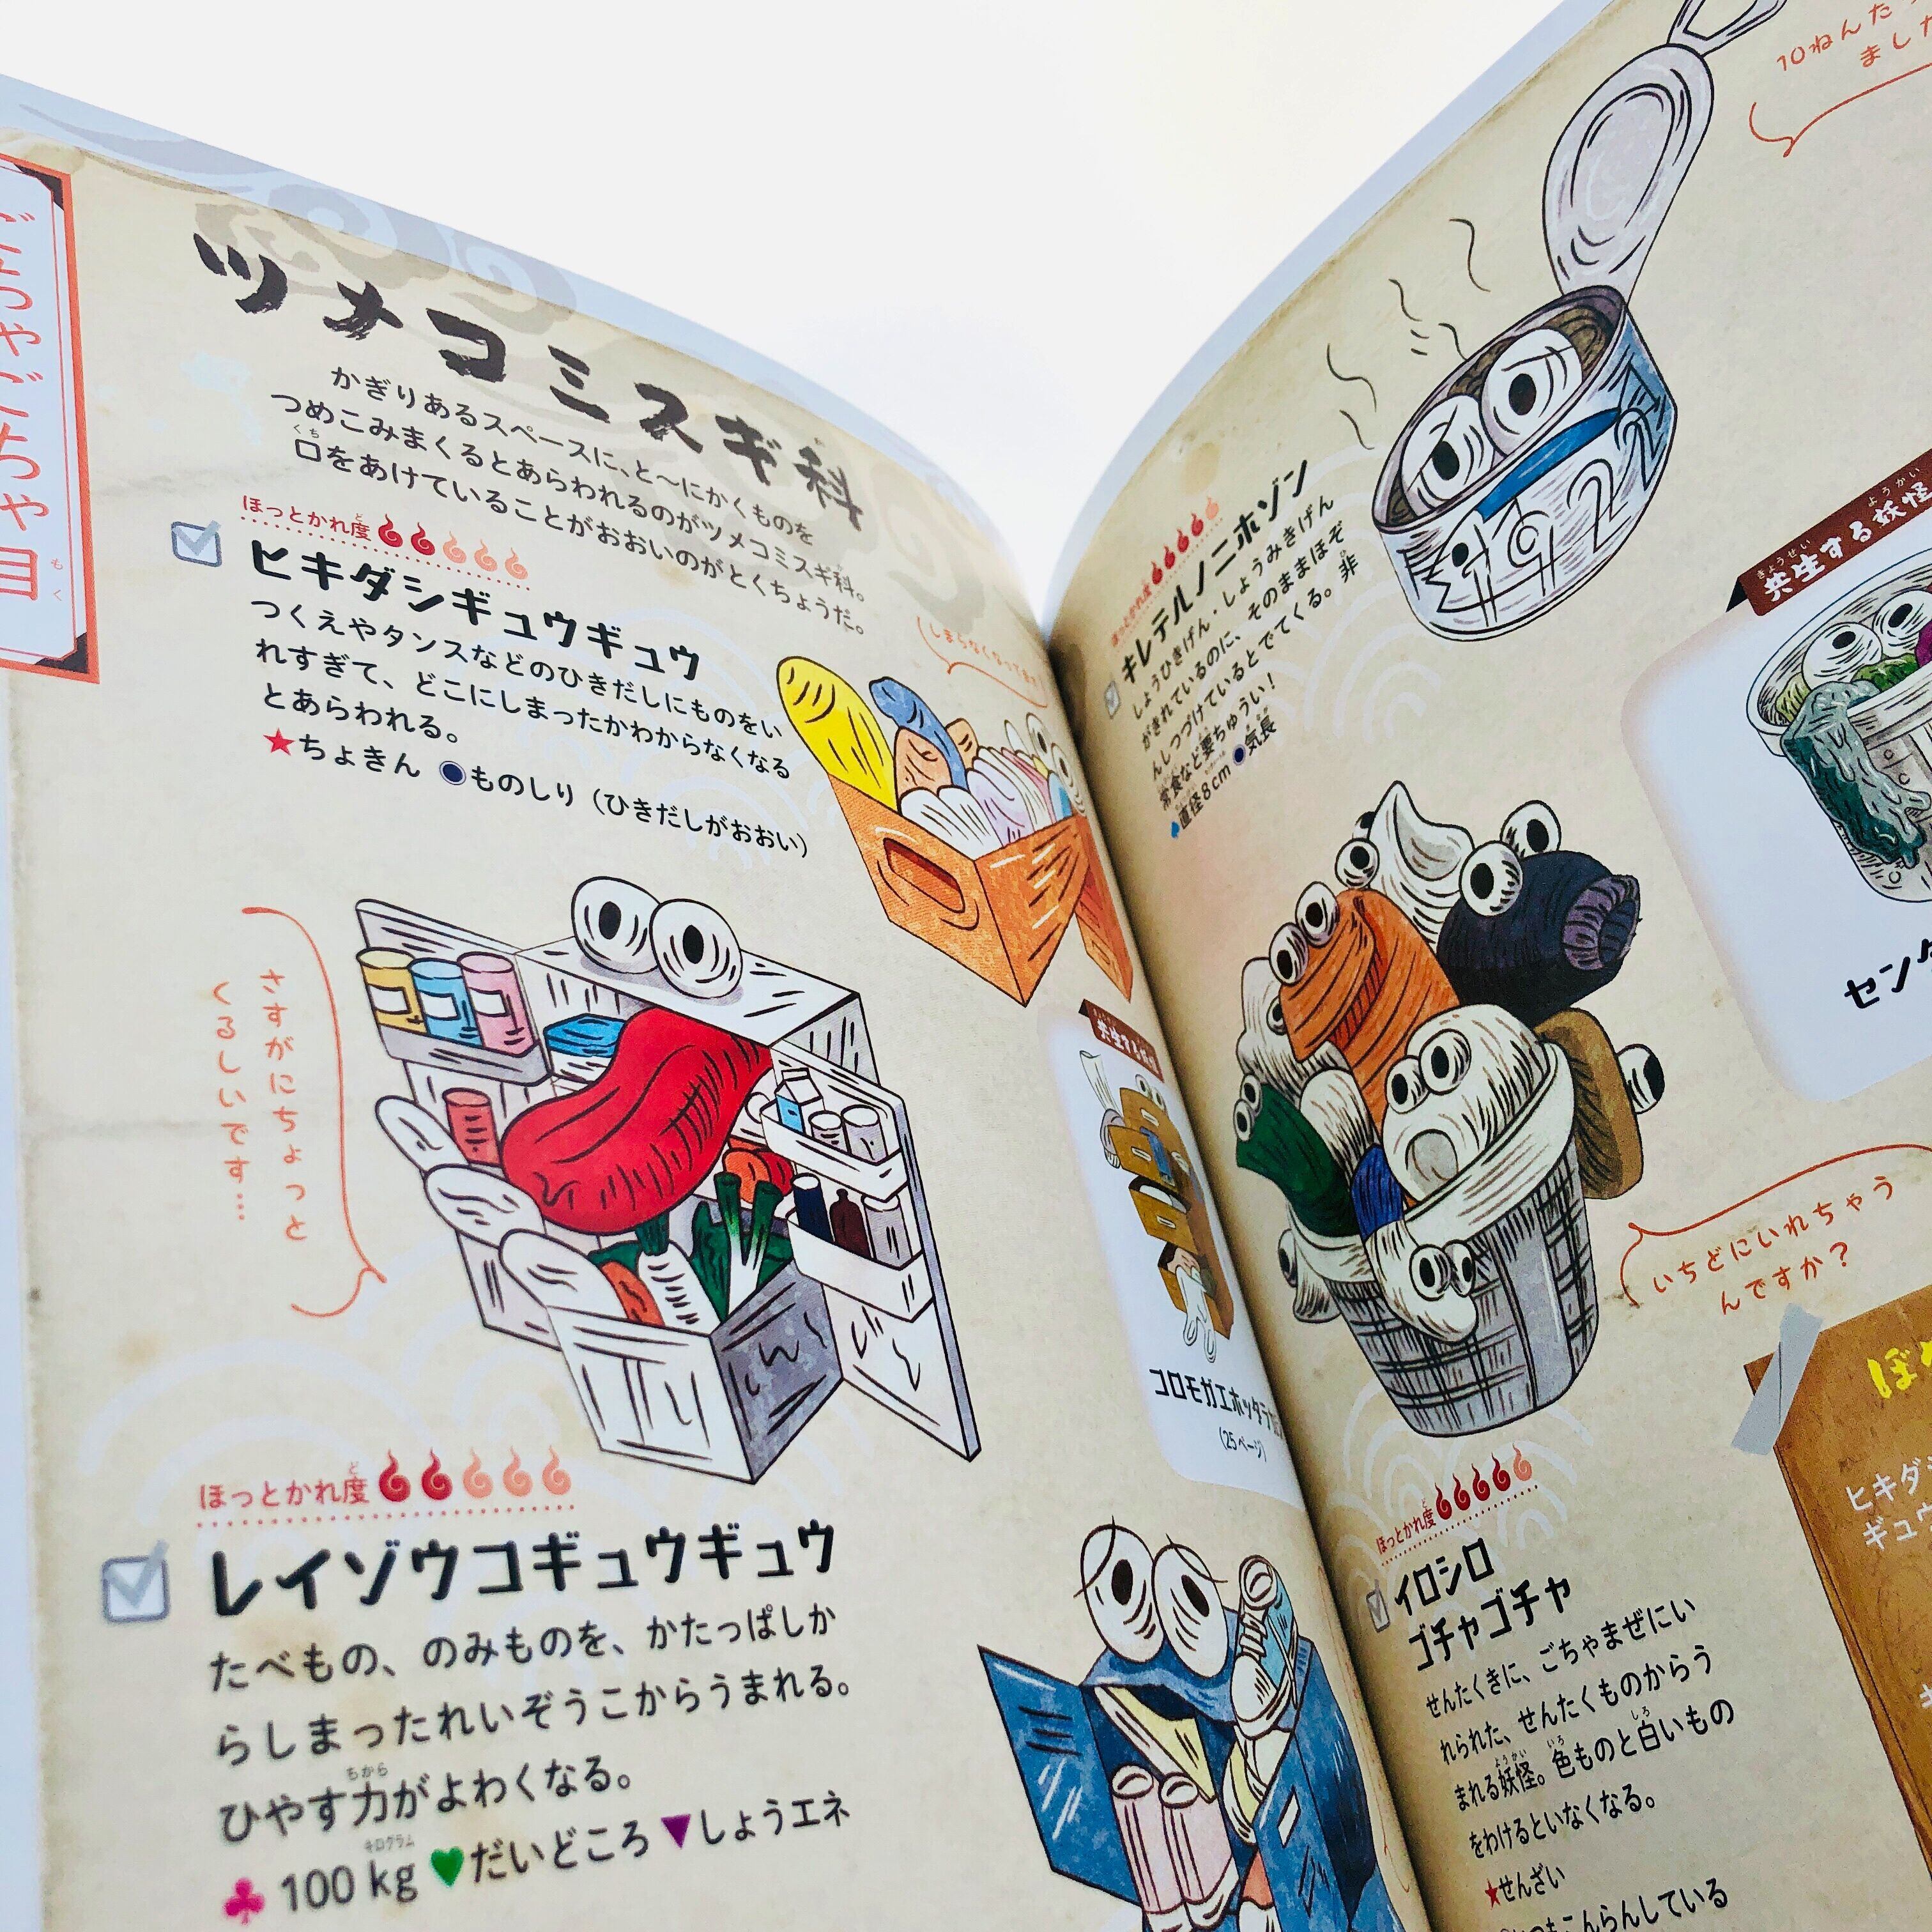 ごちゃごちゃ目
もく
ツメコミスギ科
かぎりあるスペースに、と〜にかくものを
つめこみまくるとあらわれるのがツメコミスギ科。
くち
口をあけていることがおおいのがとくちょうだ。
ほっとかれ度
ど
ヒキダシギュウギュウ
つくえやタンスなどのひきだしにものをい
れすぎて、どこにしまったかわからなくなる
とあらわれる。
★ちょきん ●ものしり（ひきだしがおおい）
さすがにちょっと
くるしいです…
共生する妖怪
コロモガエホッタラ
（25ページ）
ほっとかれ度
ど
レイゾウコギュウギュウ
たべもの、のみものを、かたっぱしか
らしまったれいぞうこからうまれる。
ちから
ひやす力がよわくなる。
キログラム
♣100kg ♥だいどころ ▼しょうエネ
10ねんた
まし
1922
ほっとかれ度
キレテルノニホゾン
しょうひきげん・しょうみきげん
がきれているのに、そのままほぞ
んしつづけているとでてくる。非
常食など要ちゅうい！
♦直径8cm ●気長
きょうせい ようかい
共生する妖怪
センタ
いちどにいれちゃう
んですか？
ほっとかれ度
ど
イロシロ
ゴチャゴチャ
せんたくきに、ごちゃまぜにい
れられた、せんたくものからう
ようかい いろ しろ
まれる妖怪。色ものと白いもの
をわけるといなくなる。
★せんざい
こんらんしている
ヒキダ
ギュウ